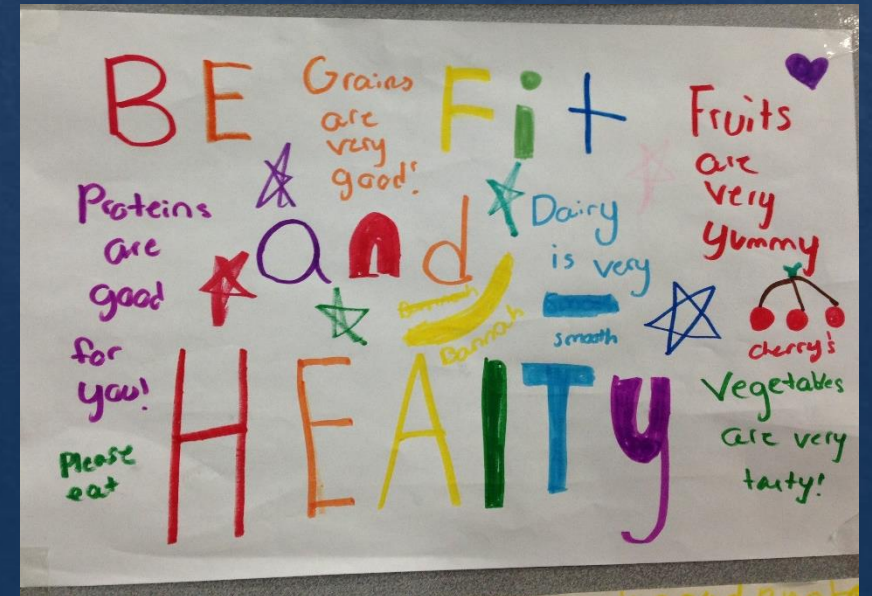 BE Fit
and
HEAlTy
Grains
are
very
good!
Fruits
are
very
yummy
Proteins
are
good
for
you!
Dairy
is very
smooth
Bannah
cherry's
Vegetables
are very
tasty!
Please
eat